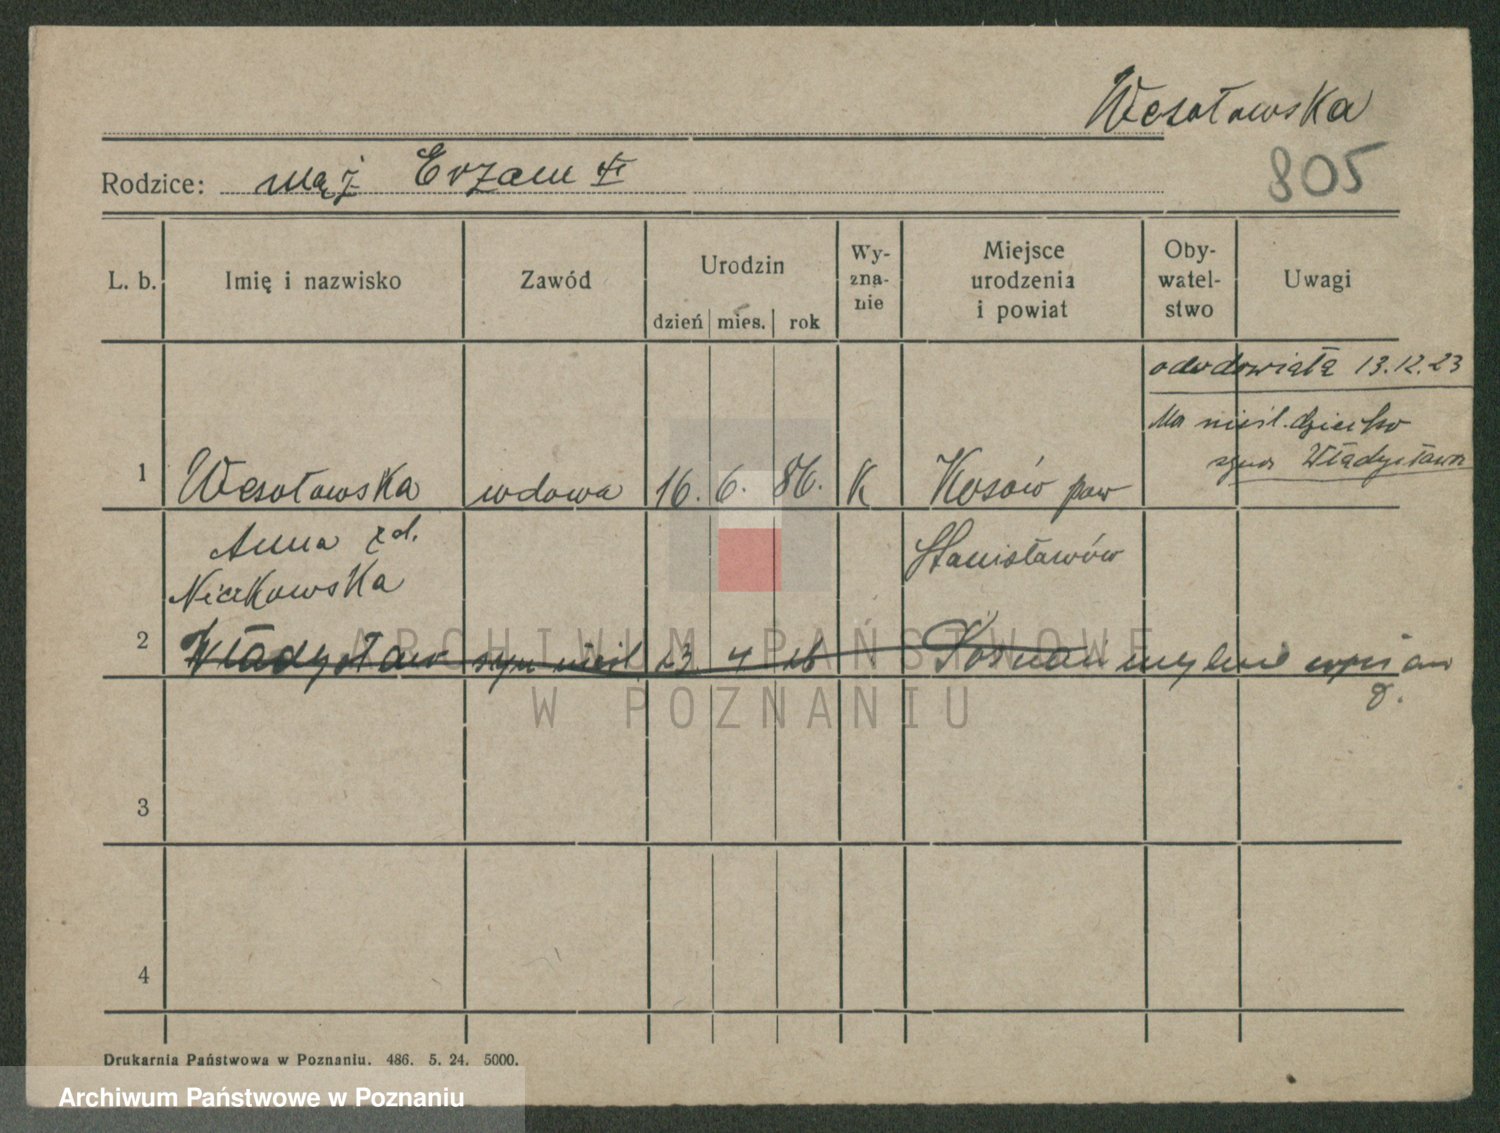 Wesołowska
805
Rodzice: mąż
L. b. Imię i nazwisko Zawód Urodzin dzień mies. rok Wy-zna-nie Miejsce urodzenia i powiat Oby-watel-stwo Uwagi
odwdowiałą 13.12.23
Ma nieśl. dziecko
syna Władysława
1 Wesołowska wdowa 16. 6. 86. K Kosów pow
Anna zd. Stanisławów
2 Władysław syn nieśl. 23 4 Poznań mylnie wpisan
3
4
Drukarnia Państwowa w Poznaniu. 486. 5. 24. 5000.
ARCHIWUM PAŃSTWOWE
W POZNANIU
Archiwum Państwowe w Poznaniu